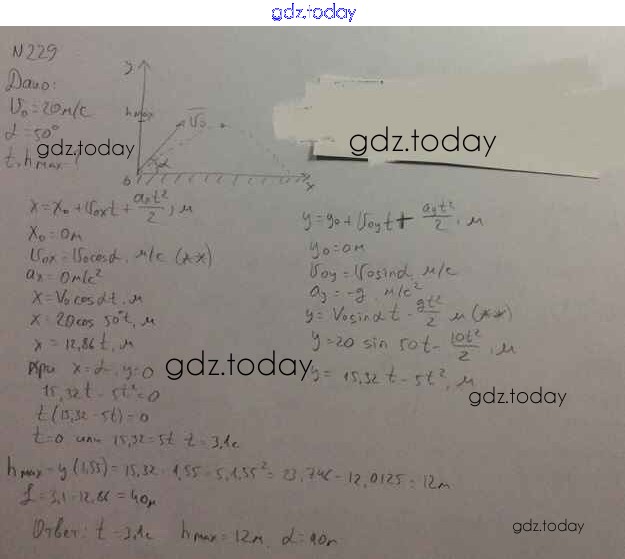 gdz.today
N229
Дано:
V₀=20м/с
α=50°
t, hmax-?
y
hmax
V₀
α
0
x
gdz.today
gdz.today
x=x₀+V₀ₓt+aₓt²/2, м
x₀=0м
V₀ₓ=V₀cosα, м/с (**)
aₓ=0м/с²
x=V₀cosαt, м
x=20cos 50°t, м
x=12,86t, м
При x=L, y=0
15,32t-5t²=0
t(15,32-5t)=0
t=0 или 15,32=5t t=3,1с
y=y₀+V₀yt+ayt²/2, м
y₀=0м
V₀y=V₀sinα, м/с
ay=-g, м/с²
y=V₀sinαt-gt²/2 м (**)
y=20 sin 50t-10t²/2, м
y=15,32t-5t², м
gdz.today
gdz.today
hmax=y(1,55)=15,32·1,55-5·1,55²=23,746-12,0125=12м
L=3,1·12,86=40м
Ответ: t=3,1с hmax=12м, L=40м
gdz.today